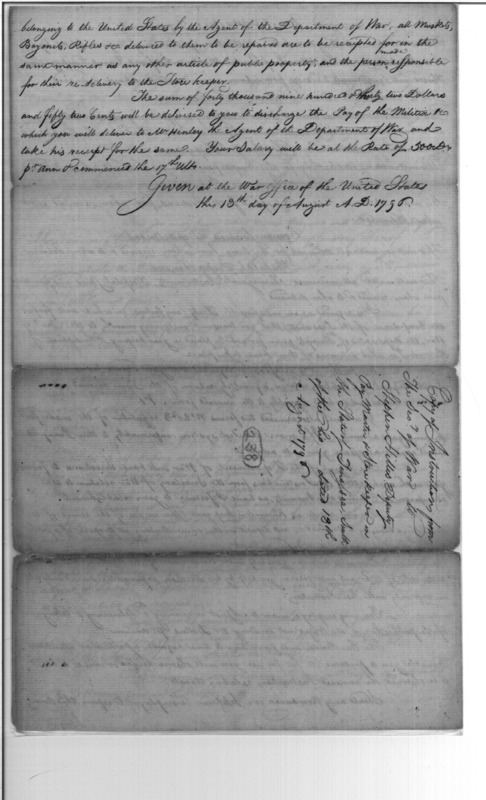 belonging to the United States by the Agent of the Department of War, all Muskets,
Bayonets, Rifles &c delivered to them to be repaired are to be receipted for in the
same manner as any other article of public property, and the person made responsible
for their redelivery to the Store keeper.
The sum of forty thousand nine hundred & thirty two Dollars
and fifty two Cents will be delivered to you to discharge the Pay of the Militia &c
which you will deliver to Mr Henley the Agent of the Department of War and
take his receipt for the same. Your Salary will be at the Rate of 500 Dolrs
pr Ann & commenced the 17th Ulto.
Given at the War Office of the United States
this 13th day of August A.D. 1796.
Copy of Instructions from
The Secy of War to
Stephen Hillis Deputy
Pay Master & Storekeeper in
the State of Tennessee
of the Dated 13th
August 1796
238